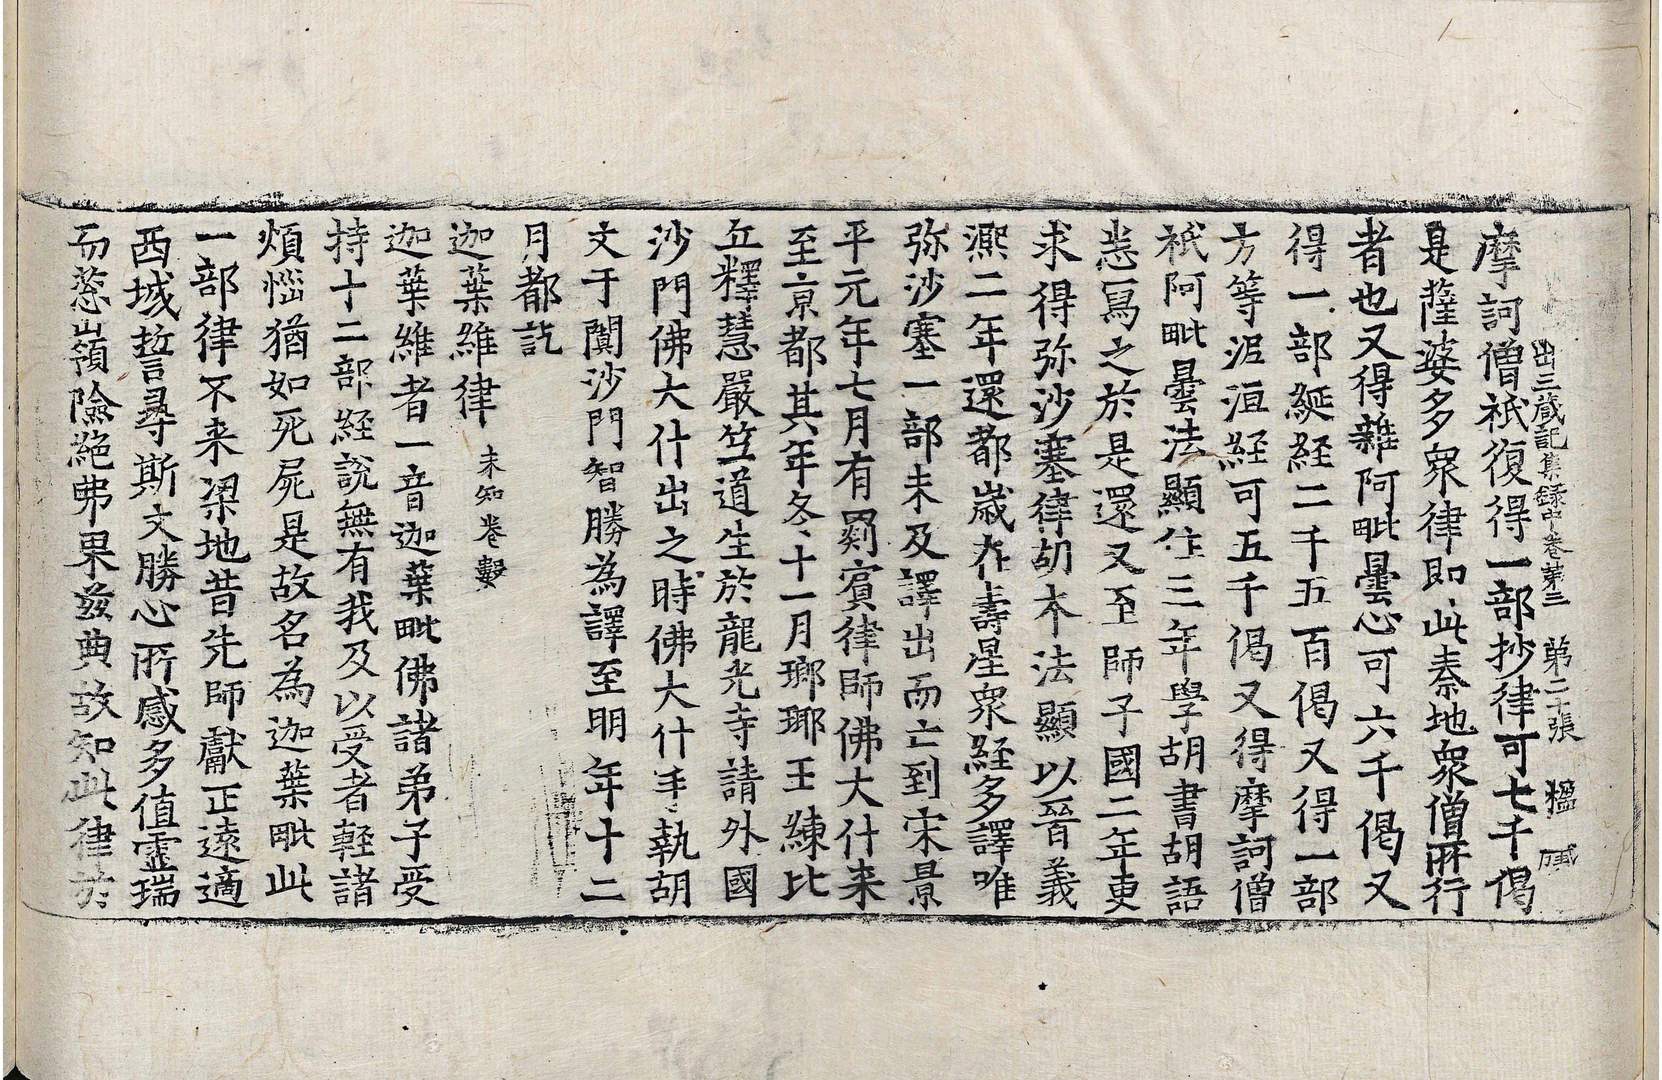 出三藏記集録中卷第三 第二十張 楹
摩訶僧祇復得一部抄律可七千偈
是薩婆多衆律即此秦地衆僧所行
者也又得雜阿毗曇心可六千偈又
得一部綖経二千五百偈又得一部
方等泥洹経可五千偈又得摩訶僧
祇阿毗曇法顯住三年學胡書胡語
悉寫之於是還又至師子國二年更
求得弥沙塞律胡本法顯以晉義
熙二年還都歲在壽星衆経多譯唯
弥沙塞一部未及譯出而亡到宋景
平元年七月有罽賓律師佛大什来
至京都其年冬十一月瑯琊王練比
丘釋慧嚴竺道生於龍光寺請外國
沙門佛大什出之時佛大什手執胡
文于闐沙門智勝為譯至明年十二
月都訖
迦葉維律 未知卷數
迦葉維者一音迦葉毗佛諸弟子受
持十二部経說無有我及以受者輕諸
煩惱猶如死屍是故名為迦葉毗此
一部律不来梁地昔先師獻正遠適
西域誓尋斯文勝心所感多值靈瑞
而葱嶺險絶弗果茲典故知此律於